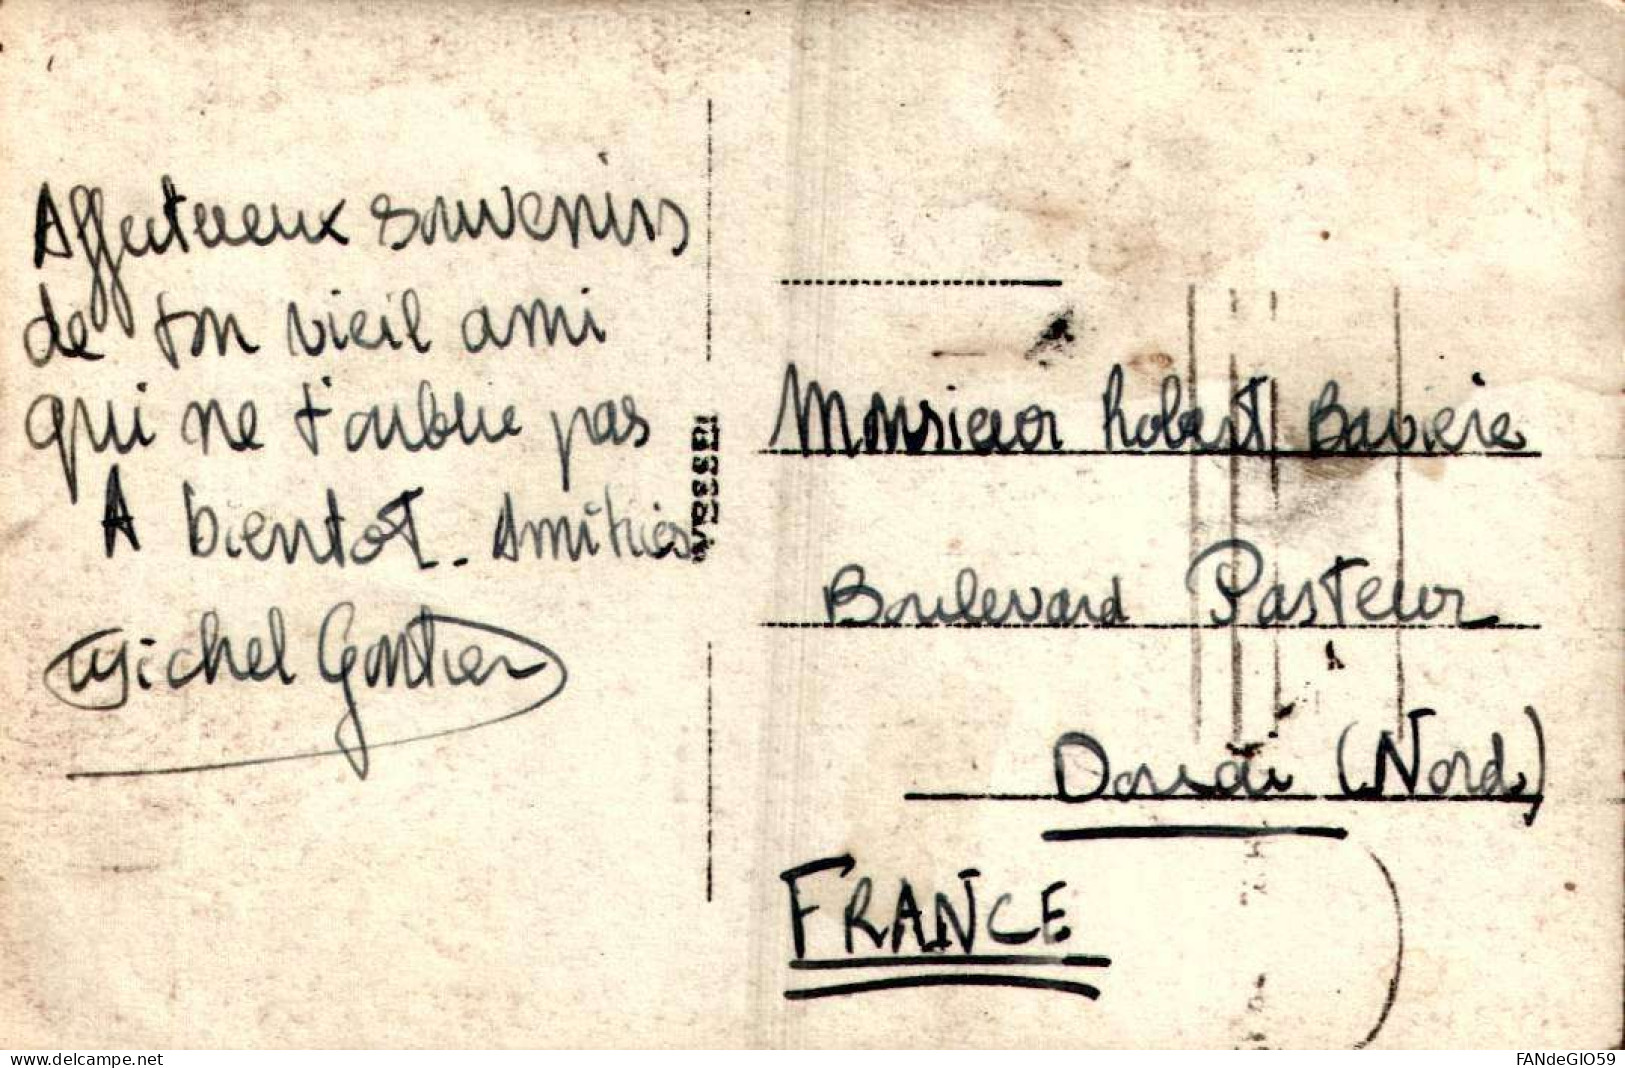 Affectueux souvenirs
de ton vieil ami
qui ne t'oublie pas
A bientôt. Amitiés
Michel Gontier
VESSBI
Monsieur Robert Baviere
Boulevard Pasteur
Douai (Nord)
FRANCE
www.delcampe.net
FANdeGIO59